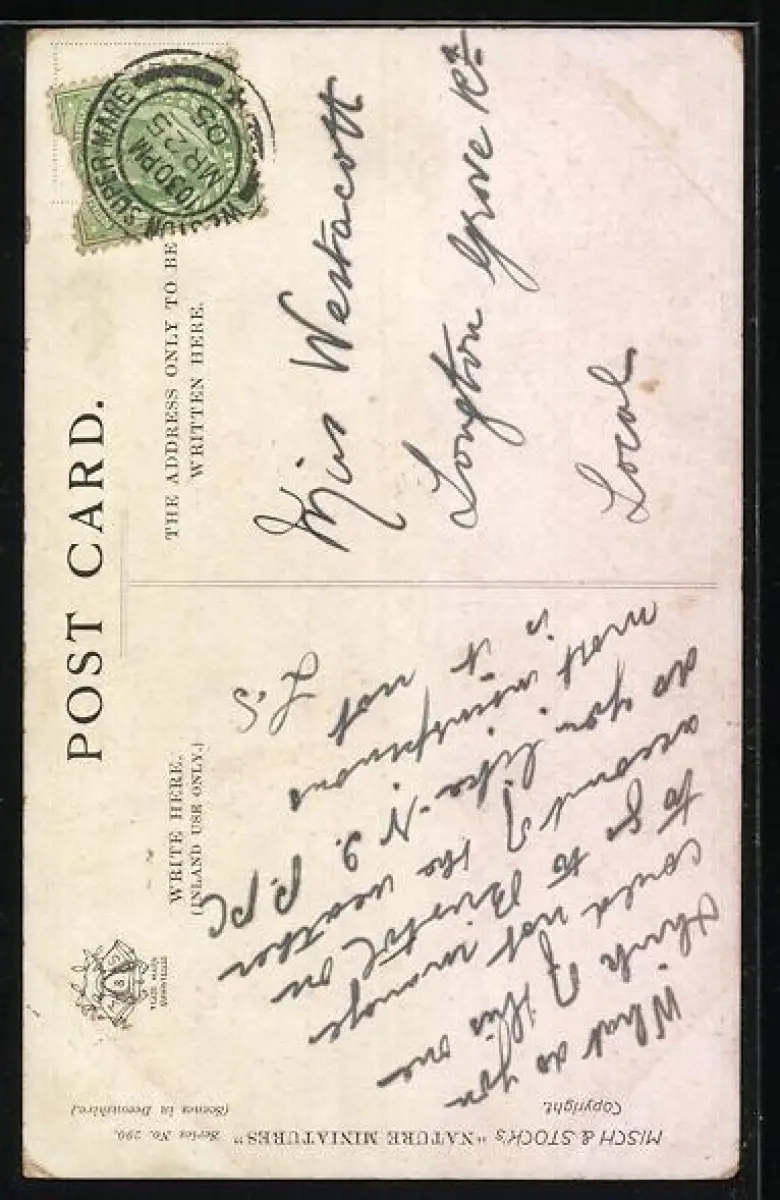 POST CARD.
THE ADDRESS ONLY TO BE
WRITTEN HERE.
WESTON SUPER-MARE
1030 PM
MR 25
05
Miss Westacott
Longton Grove Rd
Local
WRITE HERE.
(INLAND USE ONLY.)
What do you
think of this one
could not manage
to go to Bristol on
account of the weather
do you like P. PC
most
is it not
L.S
MISCH & STOCK'S "NATURE MINIATURES" Series No. 290.
Copyright. (Scenes in Devonshire.)